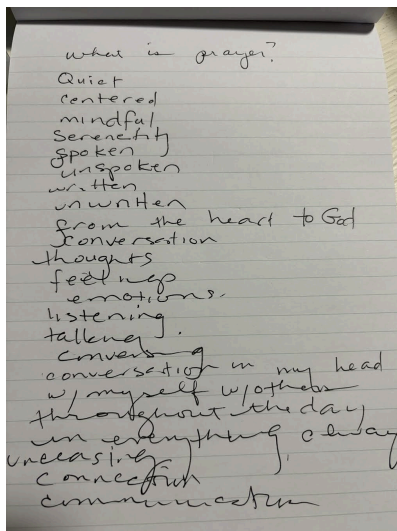 what is prayer?
Quiet
centered
mindful
Serenetity
spoken
unspoken
written
unwritten
from the heart to God
conversation
thoughts
feelings
emotions.
listening
talking.
conversing
conversation in my head
w/ myself w/others
throughout the day
in everything, alway
unceasing
connection
communication